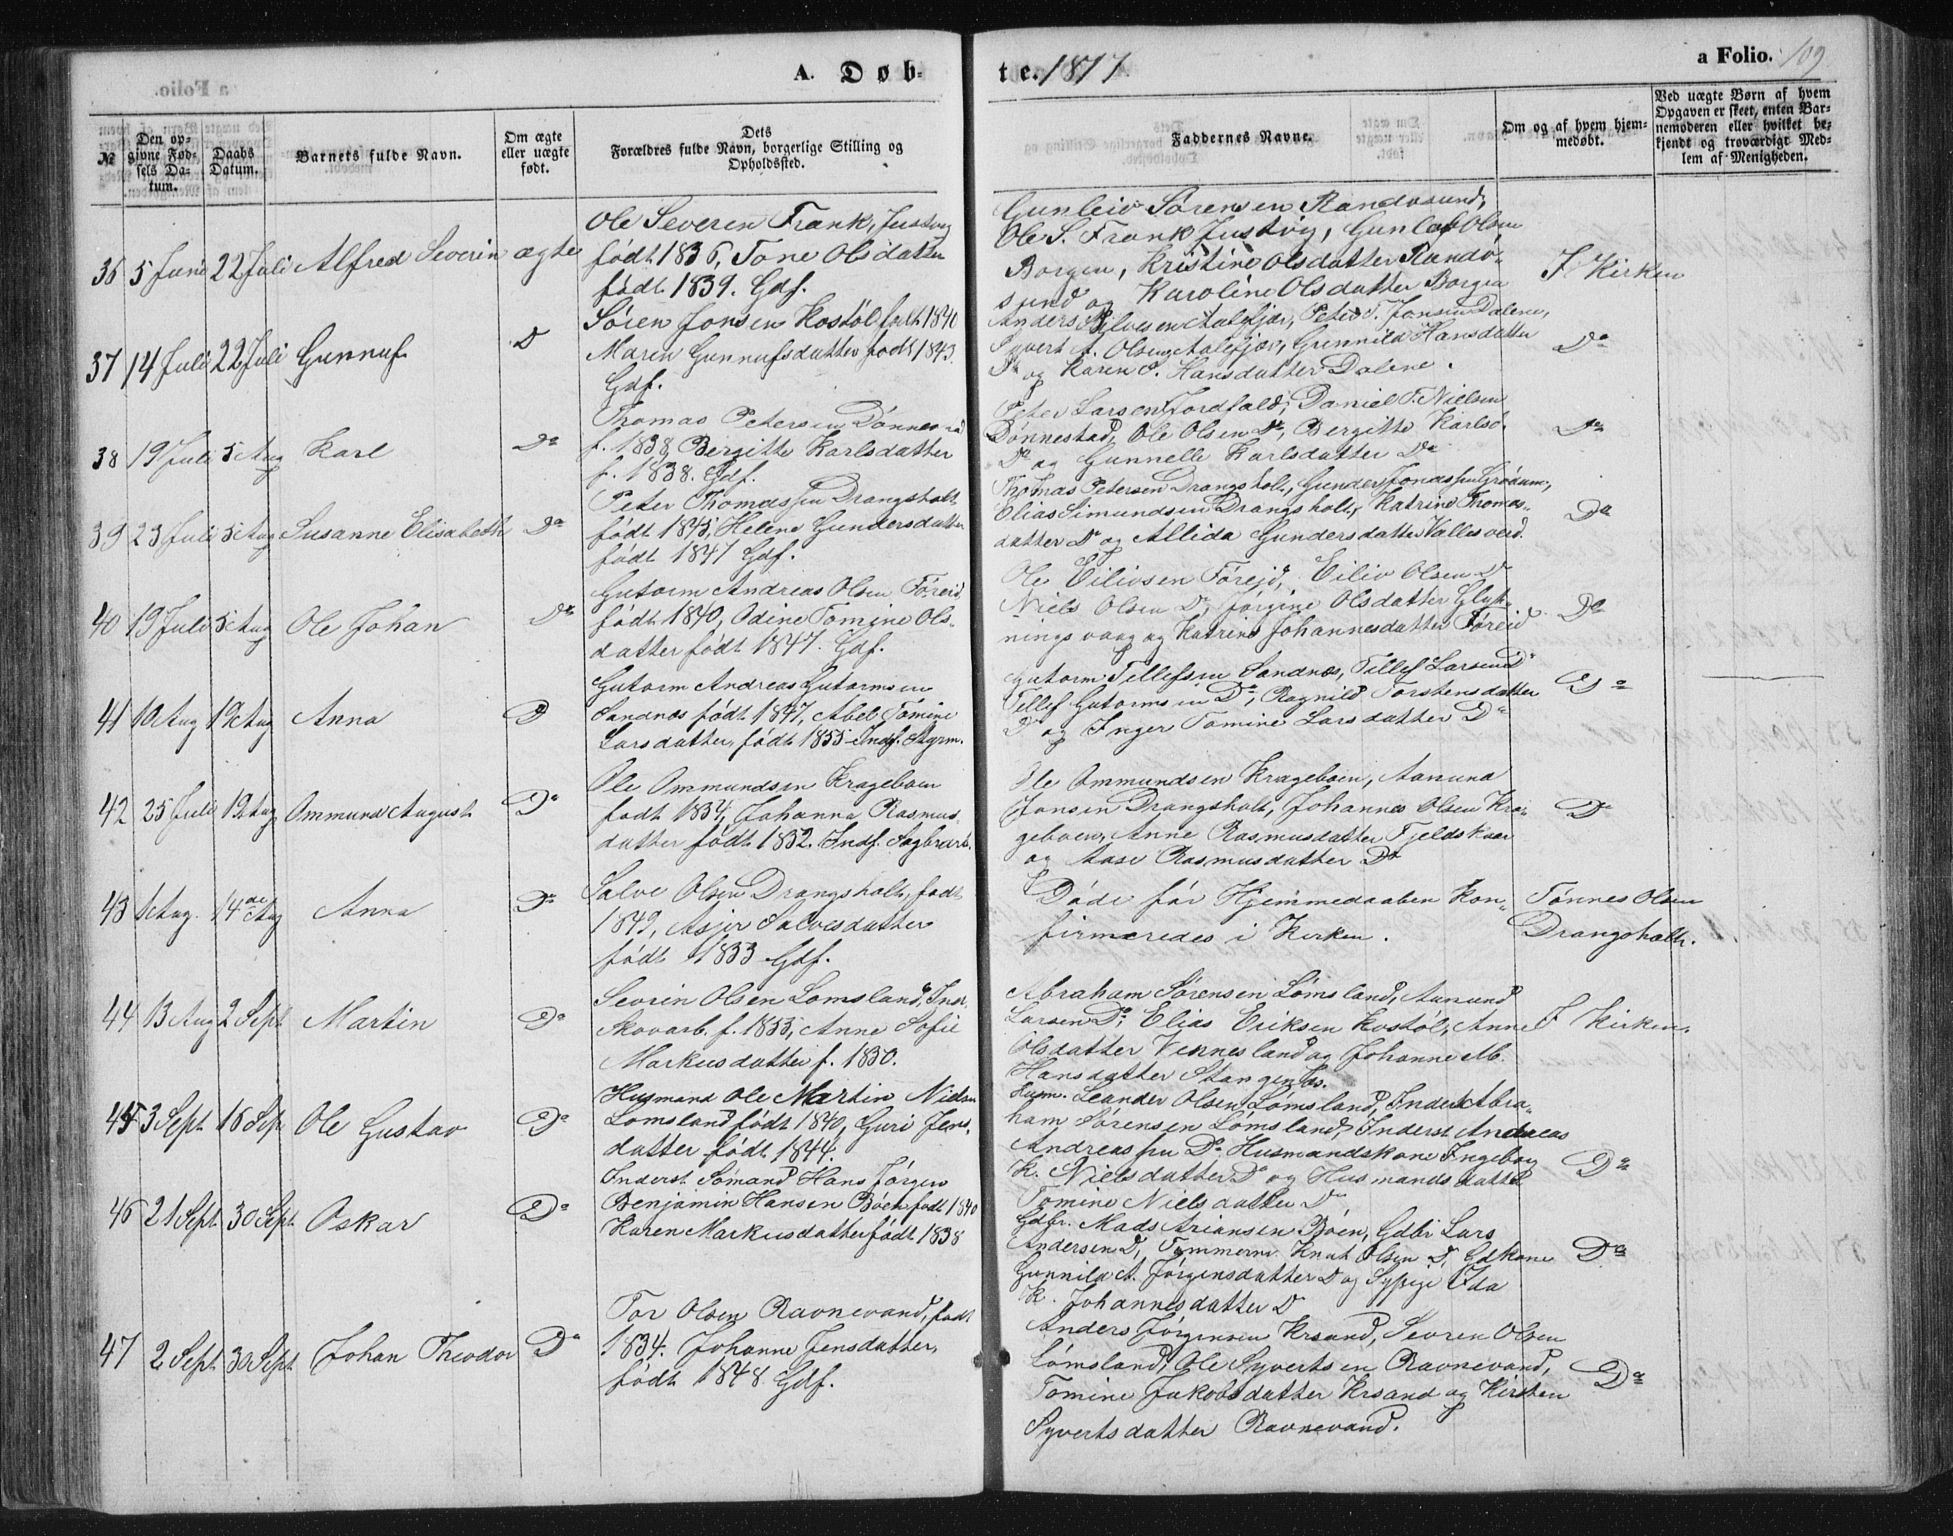 A. Døb-
te. 1877.
a Folio. 109
№
Den opgivne Fødsels Datum.
Daabs Datum.
Barnets fulde Navn.
Om ægte eller uægte født.
Dets Forældres fulde Navn, borgerlige Stilling og Opholdssted.
Faddernes Navne.
Om og af hvem hjemmedøbt.
Ved uægte Børn af hvem Opgaven er skeet, enten Barnemoderen eller hvilket bekjendt og troværdigt Medlem af Menigheden.
36 5 Juni 22 Juli Alfred Severin ægte
Ole Severen Frank, Justvig
født 1836, Tone Olsdatter
født 1839. Gdf.
Gunleiv Sørensen Randøsund,
Ole S. Frank Justvig, Gunlef Olsen
Borgen, Kristine Olsdatter Randø-
sund og Karoline Olsdatter Borgen
I Kirken
37 14 Juli 22 Juli Gunnuf D
Søren Jonsen Kostøl født 1840
Maren Gunnufsdatter født 1843.
Gdf.
Anders Aalefjær, Peter T. Jonsen Dalene,
Syvert A. Olsen Aalefjær, Gunnild Hansdatter
Do og Karen S. Hansdatter Dalene.
Do
38 19 Juli 5 Aug Karl Do
Thomas Petersen Dønnestad
f. 1838, Bergitte Karlsdatter
f. 1838. Gdf.
Peter Larsen Jordfald, Daniel T. Nielsen
Dønnestad, Ole Olsen Do, Bergitte Karlsd.
Do og Gunnelle Karlsdatter Do
Do
39 23 Juli 5 Aug Susanne Elisabeth Do
Peter Thomassen Drangsholt
født 1845, Helene Gundersdatter
født 1847 Gdf.
Thomas Petersen Drangsholt, Gunder Jonassen Grødum,
Elias Simundsen Drangsholt, Katrine Thomas-
datter Do og Allida Gundersdatter Vallesverd.
Do
40 19 Juli 5 Aug Ole Johan Do
Gutorm Andreas Olsen Føreid
født 1840, Odine Tomine Ols-
datter født 1847. Gdf.
Ole Eilivsen Føreid, Eiliv Olsen Do
Niels Olsen Do, Jørgine Olsdatter Glup-
ningsvaag og Katrine Johannesdatter Føreid
Do
41 10 Aug 19 Aug Anna D
Gutorm Andreas Gutormsen
Sandnes født 1847, Abel Tomine
Larsdatter, født 1855 Indf. Styrm.
Gutorm Tellefsen Sandnes, Tellef Larsen Do
Tellef Gutormsen Do, Ragnild Torstensdatter
Do og Inger Tomine Larsdatter Do
Do
42 25 Juli 19 Aug Ommund August Do
Ole Ommundsen Krageboen
født 1834, Johanna Rasmus-
datter født 1832. Indf. Sagbrugsarb.
Ole Ommundsen Krageboen, Aanund
Jonsen Drangsholt, Johannes Olsen Kra-
geboen, Anne Rasmusdatter Fjeldskaar
og Aase Rasmusdatter Do
Do
43 1 Aug. 14de Aug Anna Do
Salve Olsen Drangsholt, født
1849, Asjer Salvesdatter
født 1833 Gdf.
Døde før Hjemmedaaben kon-
firmeredes i Kirken.
Tønnes Olsen
Drangsholt.
44 13 Aug 2 Sept Martin Do
Sevrin Olsen Lomsland, Inds.
Skovarb. f. 1855, Anne Sofie
Markusdatter f. 1850.
Abraham Sørensen Lømsland, Aanund
Larsen Do, Elias Eriksen Kostøl, Anne
Olsdatter Vennesland og Johanne M.
Hansdatter Stangenæs.
I Kirken.
45 3 Sept 16 Sep Ole Gustav Do
Husmand Ole Martin Nielsen
Lomsland født 1840, Guri Jens-
datter født 1844.
Husm. Leander Olsen Lømsland, Inderst Abra-
ham Sørensen Lømsland, Inderst Andreas
Andreassen Do Husmandskone Ingeborg
K. Nielsdatter Do og Husmandsdatter
Tomine Nielsdatter Do
Do
46 21 Sept. 30 Sept. Oskar Do
Inderst Sømand Hans Jørgen
Benjamin Hansen Bøen født 1840
Karen Markusdatter født 1838
Gdbr. Mads Ariansen Bøen, Gdbr Lars
Andersen D, Tømmerm. Knut Olsen D, Gdkone
Gunnild A. Jørgensdatter D og Sypige Ida
K. Johannesdatter D
Do
47 2 Sept 30 Sept. Johan Theodor Do
Tor Olsen Ravnevand, født
1834. Johanne Jensdatter,
født 1848. Gdf.
Anders Jørgensen Krsand, Sevren Olsen
Lømsland, Ole Syvertsen Ravnevand,
Tomine Jakobsdatter Krsand og Kirsten
Syvertsdatter Ravnevand.
Do